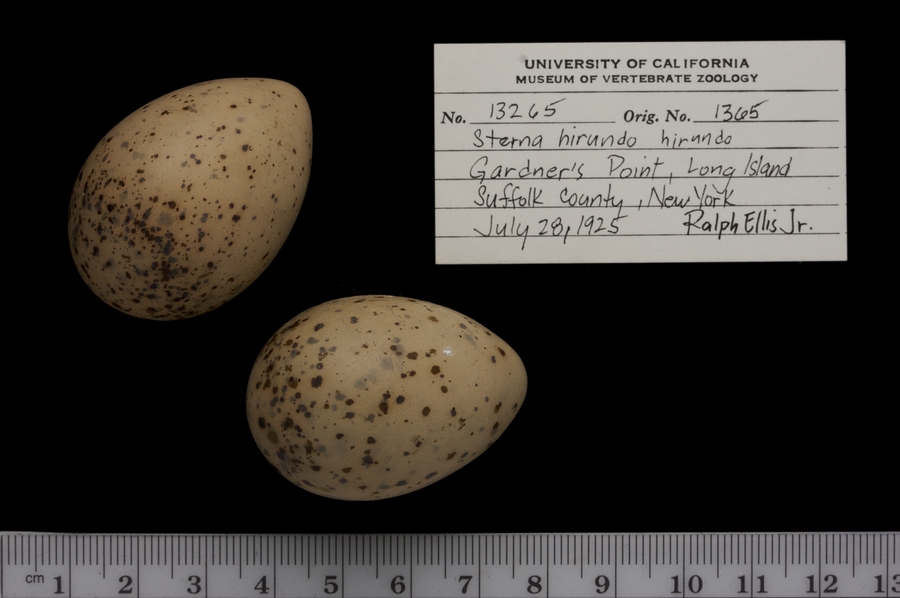 UNIVERSITY OF CALIFORNIA
MUSEUM OF VERTEBRATE ZOOLOGY
No. 13265 Orig. No. 1365
Sterna hirundo hirundo
Gardner's Point, Long Island
Suffolk County, New York
July 28, 1925 Ralph Ellis Jr.
cm 1 2 3 4 5 6 7 8 9 10 11 12 13